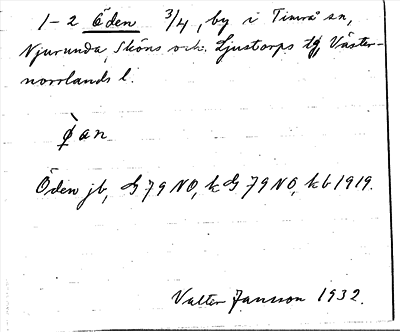 1-2 Öden 3/4, by i Timrå sn,
Njurunda, Sköns och Ljustorps tg, Väster-
norrlands l.
ø̀an
Öden jb, G 79 NO, k G 79 NO, kb 1919.
Valter Jansson 1932.